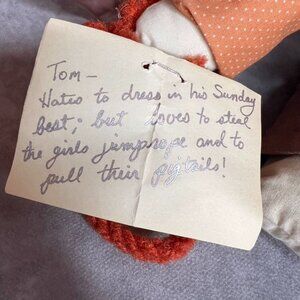 Tom —
Hates to dress in his Sunday
best; but loves to steal
the girls jumprope and to
pull their pigtails!